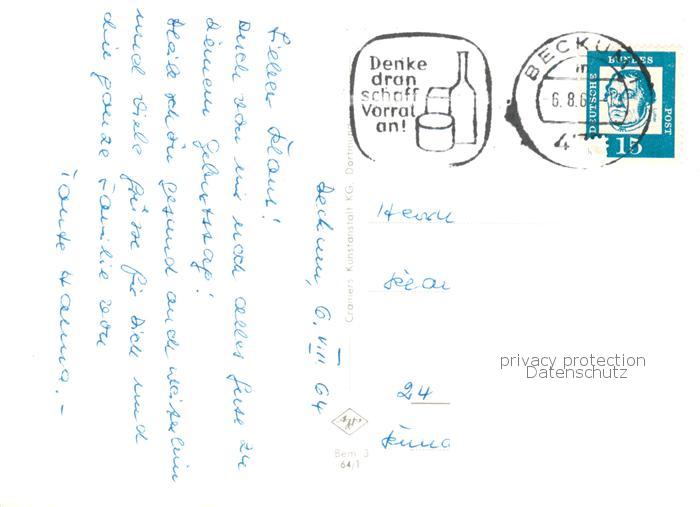 Beckum, 6. VIII 64
Lieber Klaus!
Auch von mir noch alles Gute zu
Deinem Geburtstag!
Bleib schön gesund auch weiterhin
und viele Grüße für Dich und
die ganze Familie von
Tante Hanna.-
Denke
dran
schaff
Vorrat
an!
BECKUM
6.8.6
DEUTSCHE
BUNDES
POST
15
Cramers Kunstanstalt KG. Dortmund
Herrn
24
privacy protection
Datenschutz
Bem 3
64/1